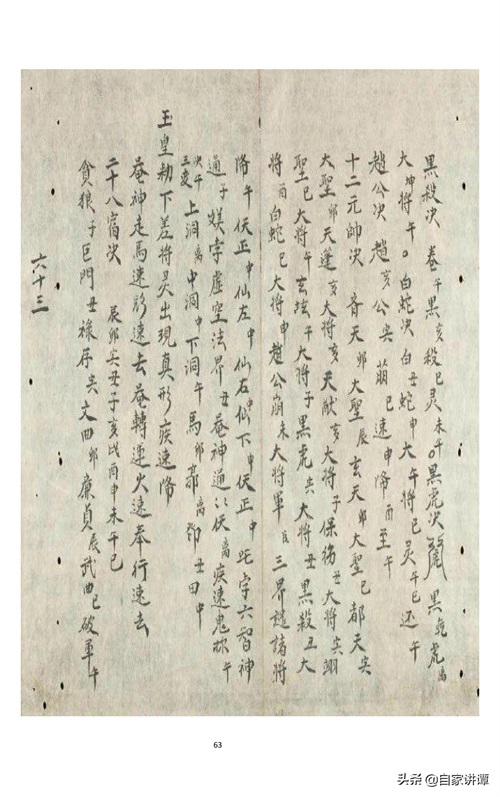 黑殺决 卷午黑亥殺巳灵未午○黑虎决 黑乾虎离
大坤將午○白蛇决白丑蛇申大午將巳灵午巳还午
趙公决 趙亥公寅萠巳速申降酉至午
十二元帅次 齐天卯大聖辰玄天卯大聖巳都天寅
大聖卯天蓬亥大將亥天猷亥大將子保殇丑大將寅翊
聖巳大將午玄坛午大將子黑虎寅大將丑黑殺丑大
將酉白蛇巳大將申趙公崩未大將軍 三界諸將
降午伏正中仙左中仙右中仙下中伏正中 字六智神
通子 字虚空法界丑菴神通以伏离疾速鬼 午
决午三变 上洞离中洞中下洞午馬卯郭离鄧丑田中
玉皇勅下差將灵出現真形疾速降
菴神走馬速 速去菴轉運火速奉行速去
二十八宿次 辰卯寅丑子亥戌酉申未午巳
貪狼子巨門丑祿存寅文曲卯廉貞辰武曲巳破軍午
六十三
63
头条@自家讲谭